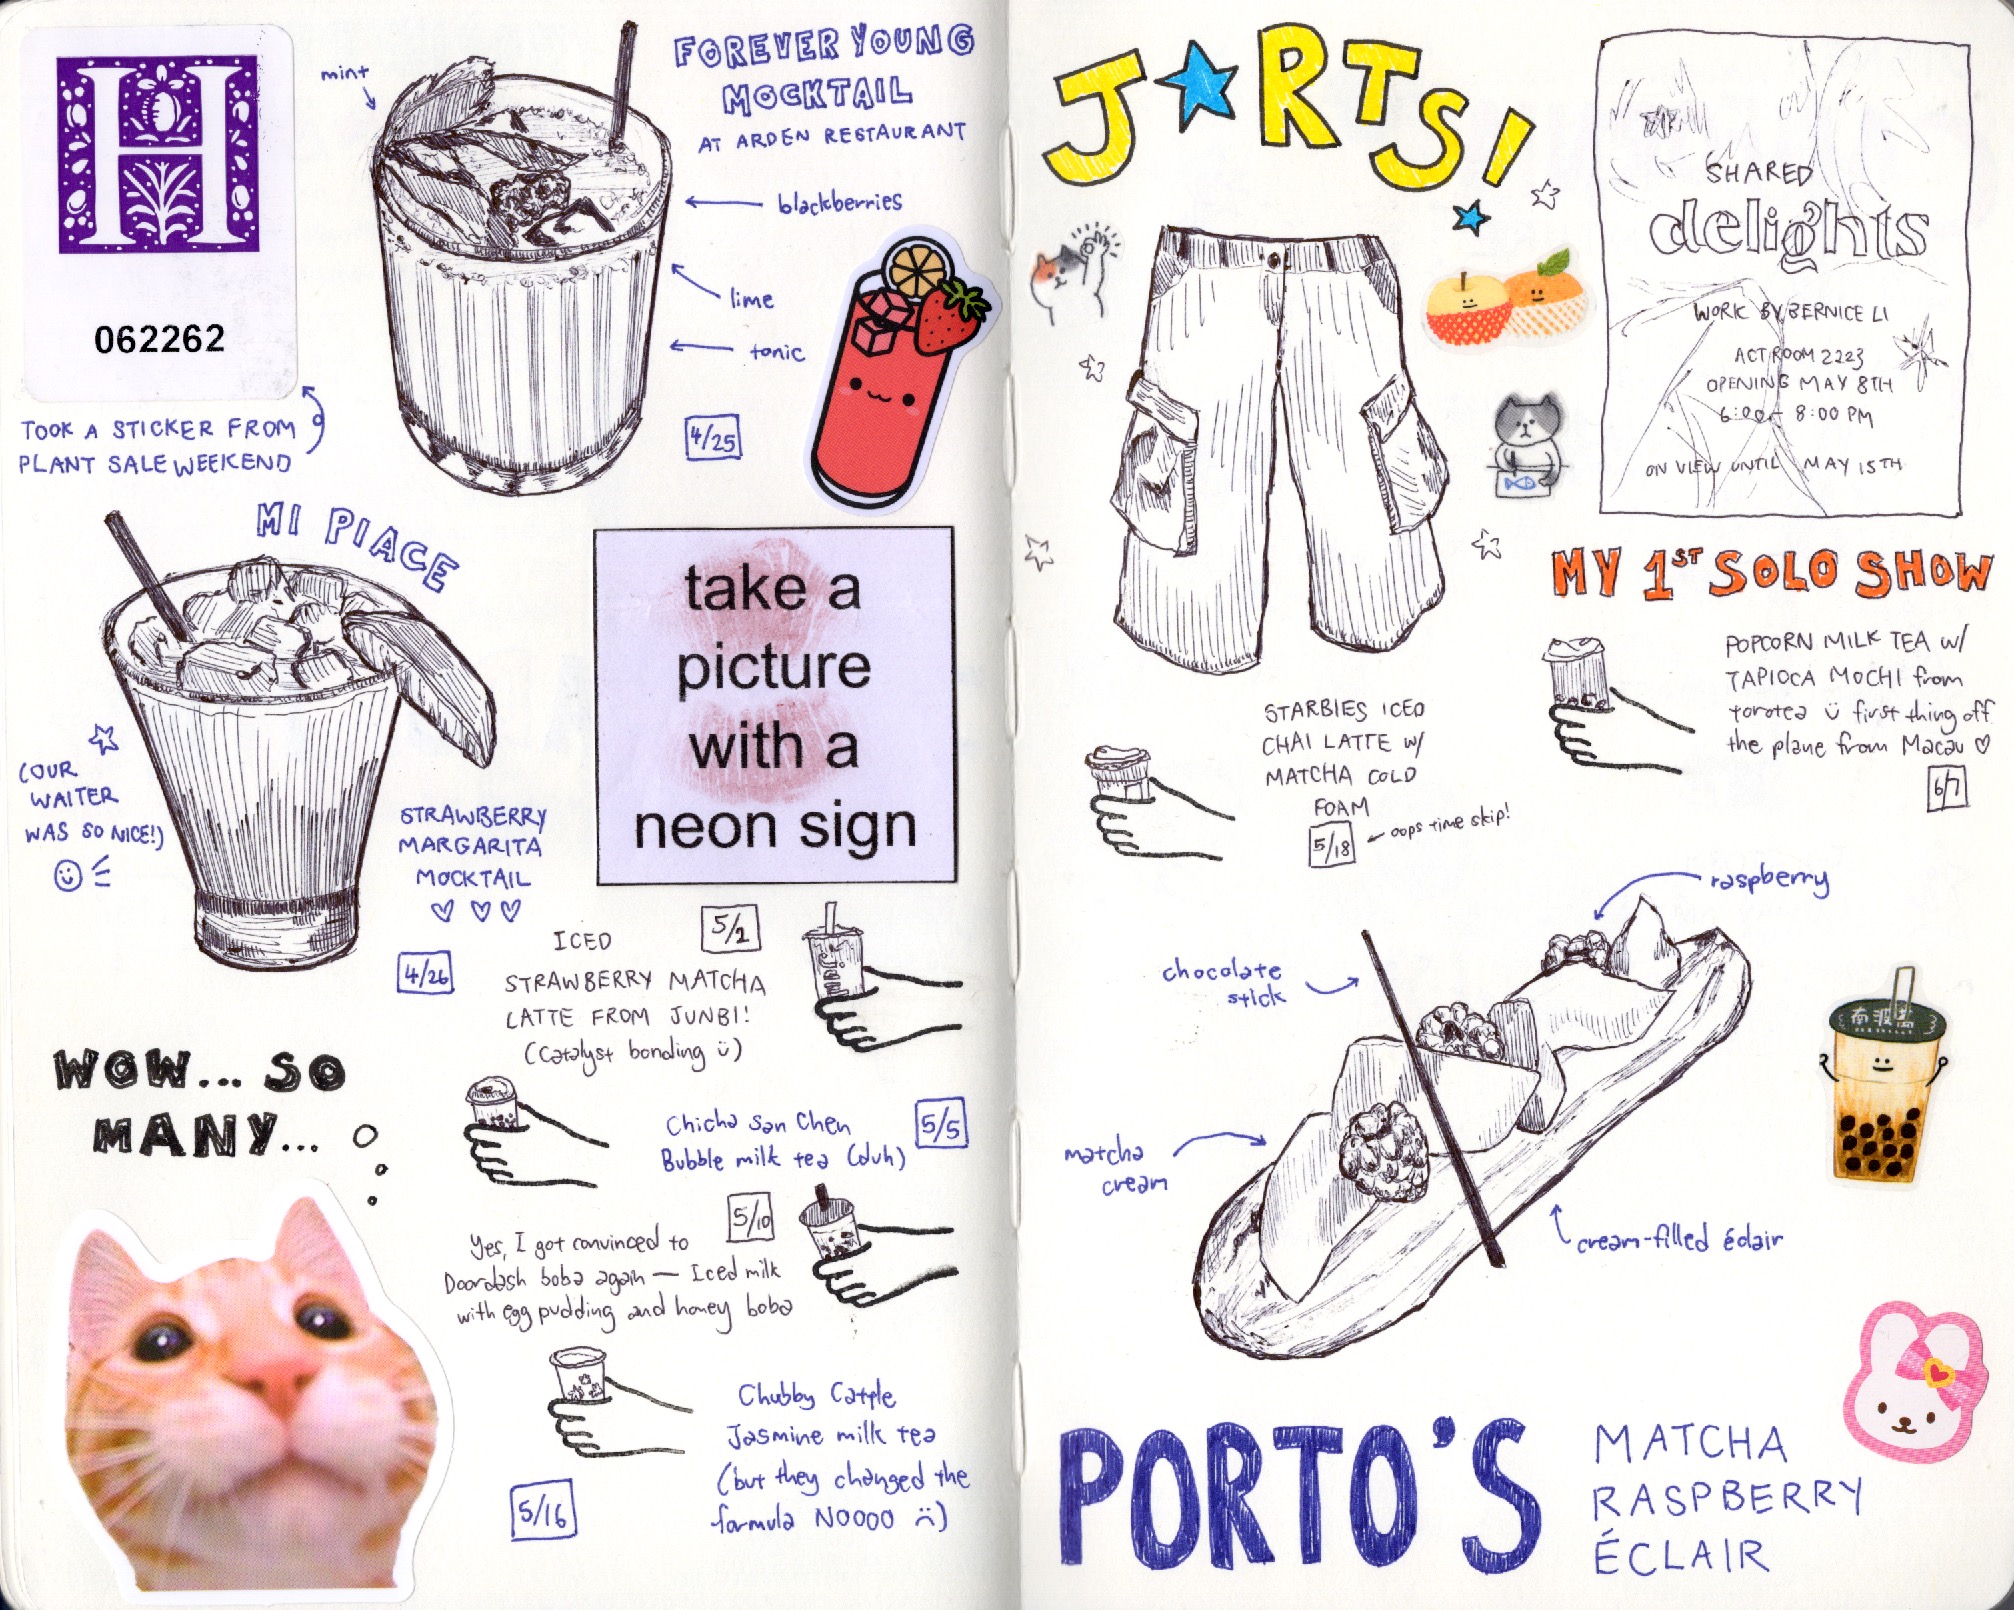 H
062262
TOOK A STICKER FROM
PLANT SALE WEEKEND
mint
FOREVER YOUNG
MOCKTAIL
AT ARDEN RESTAURANT
blackberries
lime
tonic
4/25
MI PIACE
(OUR
WAITER
WAS SO NICE!)
STRAWBERRY
MARGARITA
MOCKTAIL
4/26
take a
picture
with a
neon sign
5/2
ICED
STRAWBERRY MATCHA
LATTE FROM JUNBI!
(Catalyst bonding ü)
WOW... SO
MANY...
Chicha San Chen
Bubble milk tea (duh)
5/5
5/10
Yes, I got convinced to
Doordash boba again — Iced milk
with egg pudding and honey boba
Chubby Cattle
Jasmine milk tea
(but they changed the
formula NOOOO :()
5/16
J★RTS!
SHARED
delights
WORK BY BERNICE LI
ACT ROOM 2223
OPENING MAY 8TH
6:00 - 8:00 PM
ON VIEW UNTIL MAY 15TH
MY 1ST SOLO SHOW
POPCORN MILK TEA W/
TAPIOCA MOCHI from
torotea ü first thing off
the plane from Macau ♡
6/7
STARBIES ICED
CHAI LATTE W/
MATCHA COLD
FOAM
5/18
oops time skip!
raspberry
chocolate
stick
matcha
cream
cream-filled éclair
PORTO'S
MATCHA
RASPBERRY
ÉCLAIR